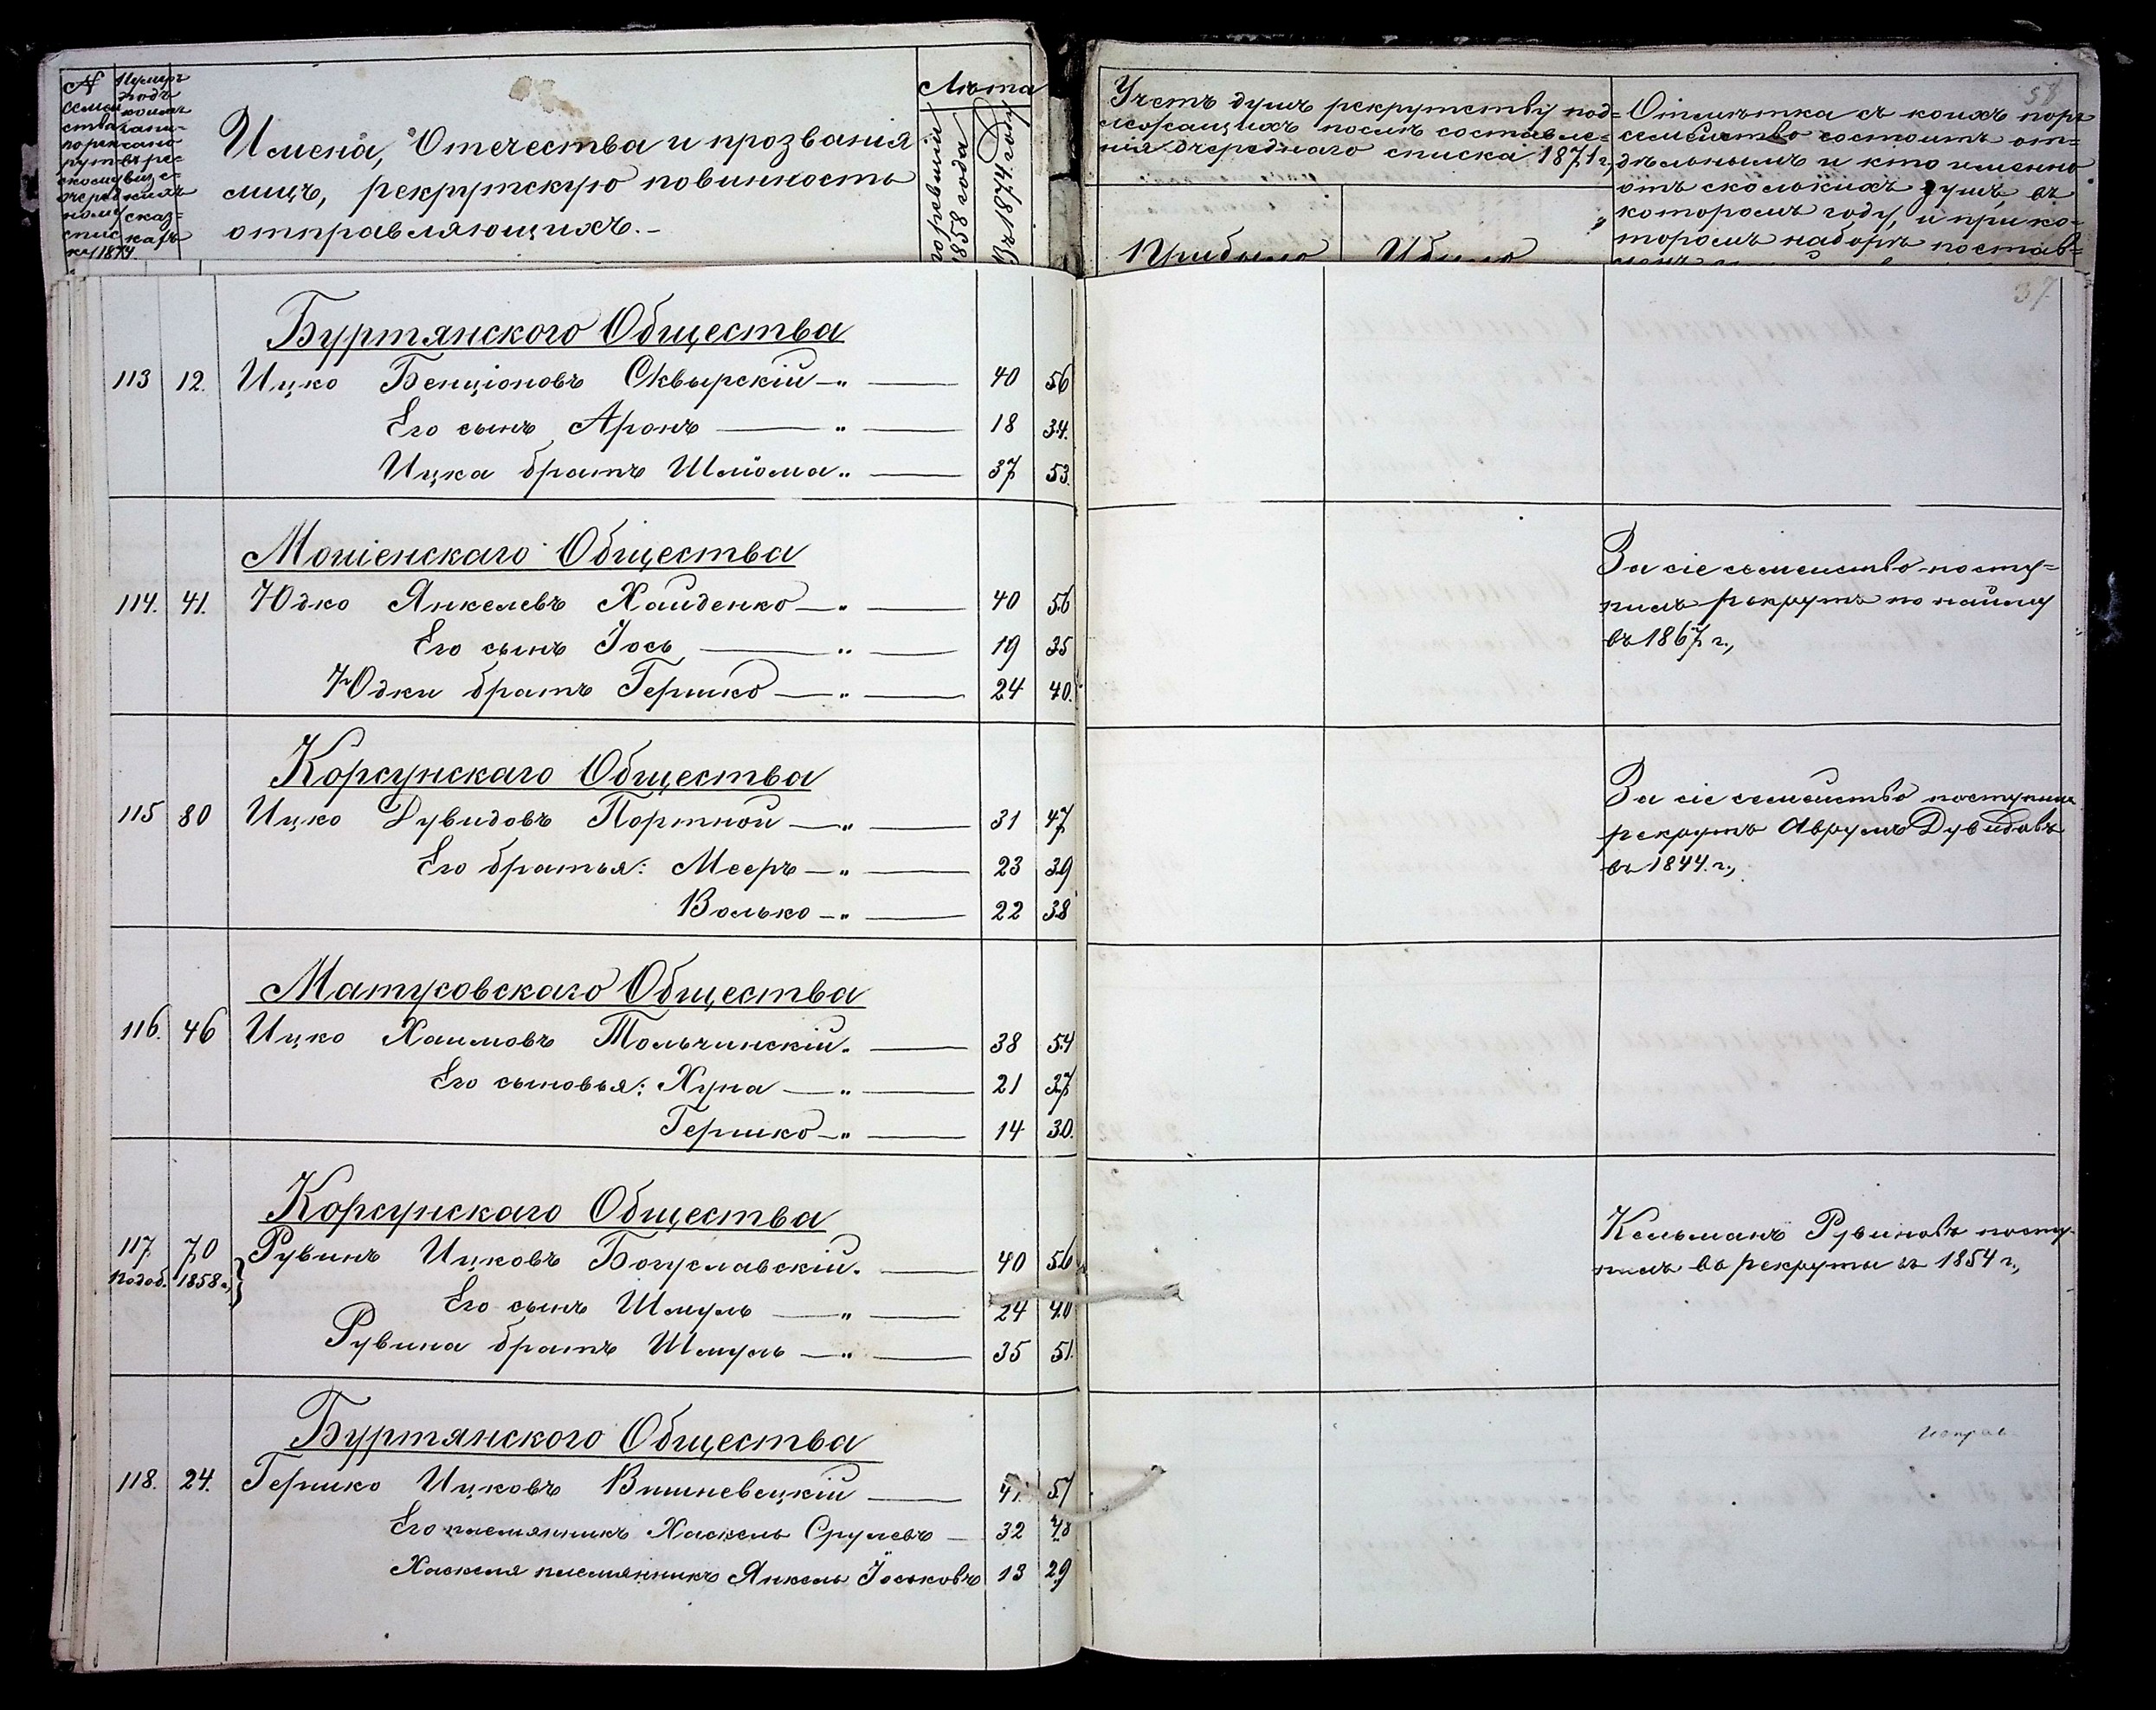 №
семей
ства
по рек
рутск
скому
очеред
ному
спис
ку 1874
Нумера
подъ
коимъ
запи-
сано
въ рес
визс-
кихъ
сказ-
кахъ
Имена, Отечества и прозванія
лицъ, рекрутскую повинность
отправляющихъ.-
Лѣта
по ревизіи
1858 года
Въ 1874 году
Учетъ душъ рекрутству под=
лежащихъ послѣ составле=
нія очереднаго списка 1871 г.,
Прибыло
Убыло
58
Отмѣтка съ коихъ поръ
семейство состоитъ от=
дѣльнымъ и кто именно
отъ сколькихъ душъ, въ
которомъ году, и при ко-
торомъ наборѣ постав=
37
Буртянского Общества
113 12. Ицко Бенціоновъ Сквырскій-„ — 40 56
Его сынъ Аронъ — „ — 18 34.
Ицка братъ Шліома „ — 37 53.
Мошенскаго Общества
114. 41. Юдко Янкелевъ Хайденко-„ — 40 56
Его сынъ Іось — „ — 19 35
Юдки братъ Гершко-„ — 24 40.
За сіе семейство посту=
пилъ рекрутъ по найму
въ 1867 г.,
Корсунскаго Общества
115 80 Ицко Дувидовъ Портной-„ — 31 47
Его братья: Мееръ-„ — 23 39
Волько-„ — 22 38
За сіе семейство поступил
рекрутъ Аврумъ Дувидовъ
въ 1844. г.,
Матусовскаго Общества
116. 46 Ицко Хаимовъ Тольчинскій. — 38 54
Его сыновья: Хуна-„ — 21 37
Гершко-„ — 14 30.
Корсунскаго Общества
117 70 Рувинъ Ицковъ Богуславскій. — 40 56
подоб. 1858 г.,
Его сынъ Шмуль-„ — 24 40
Рувина братъ Шмуль-„ — 35 51.
Кельманъ Рувиновъ посту-
пилъ въ рекруты въ 1854 г.,
Буртянского Общества
118. 24. Гершко Ицковъ Вишневецкій — 41. 57
Его племянникъ Хаскель Срулевъ — 32 48
Хаскеля племянникъ Янкель Іоськовъ 13 29